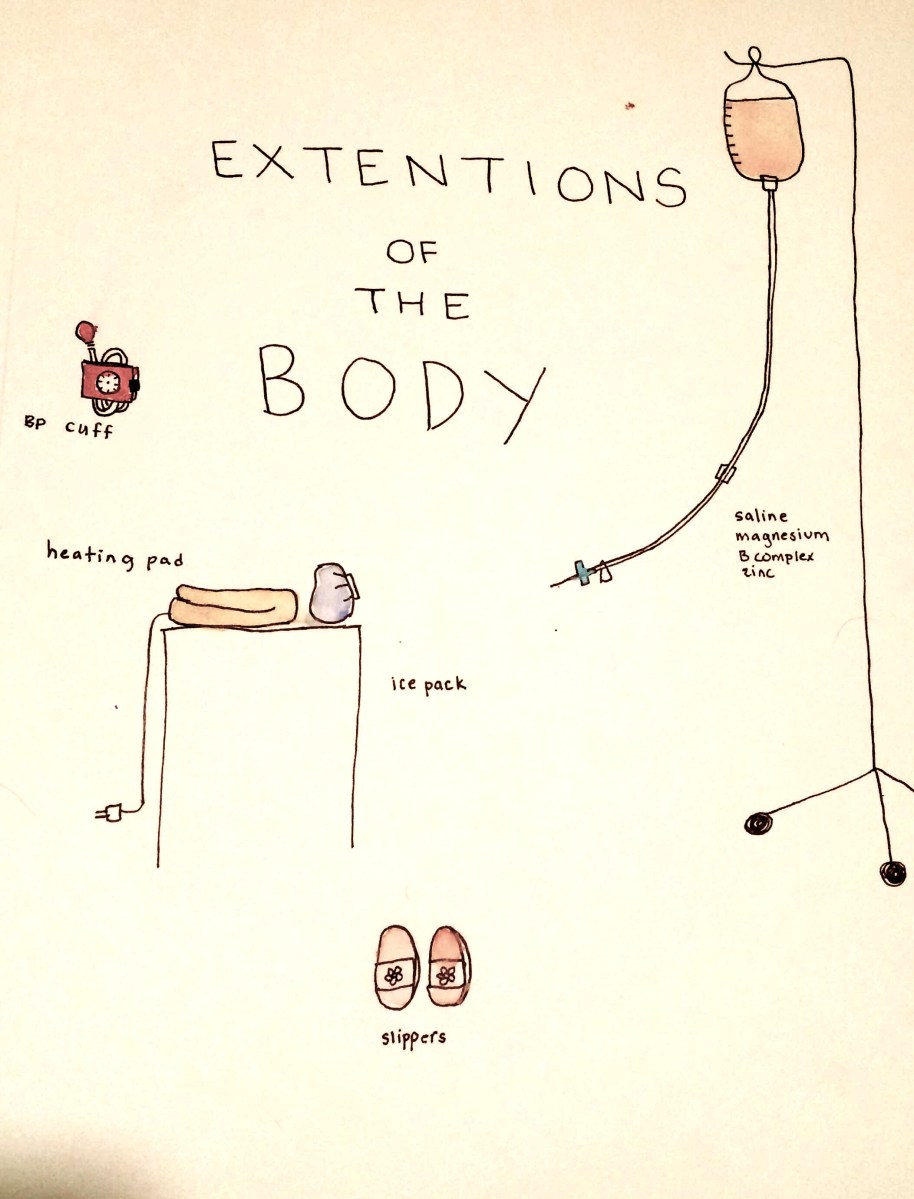 EXTENTIONS
OF
THE
BODY
BP cuff
saline
magnesium
B complex
zinc
heating pad
ice pack
slippers